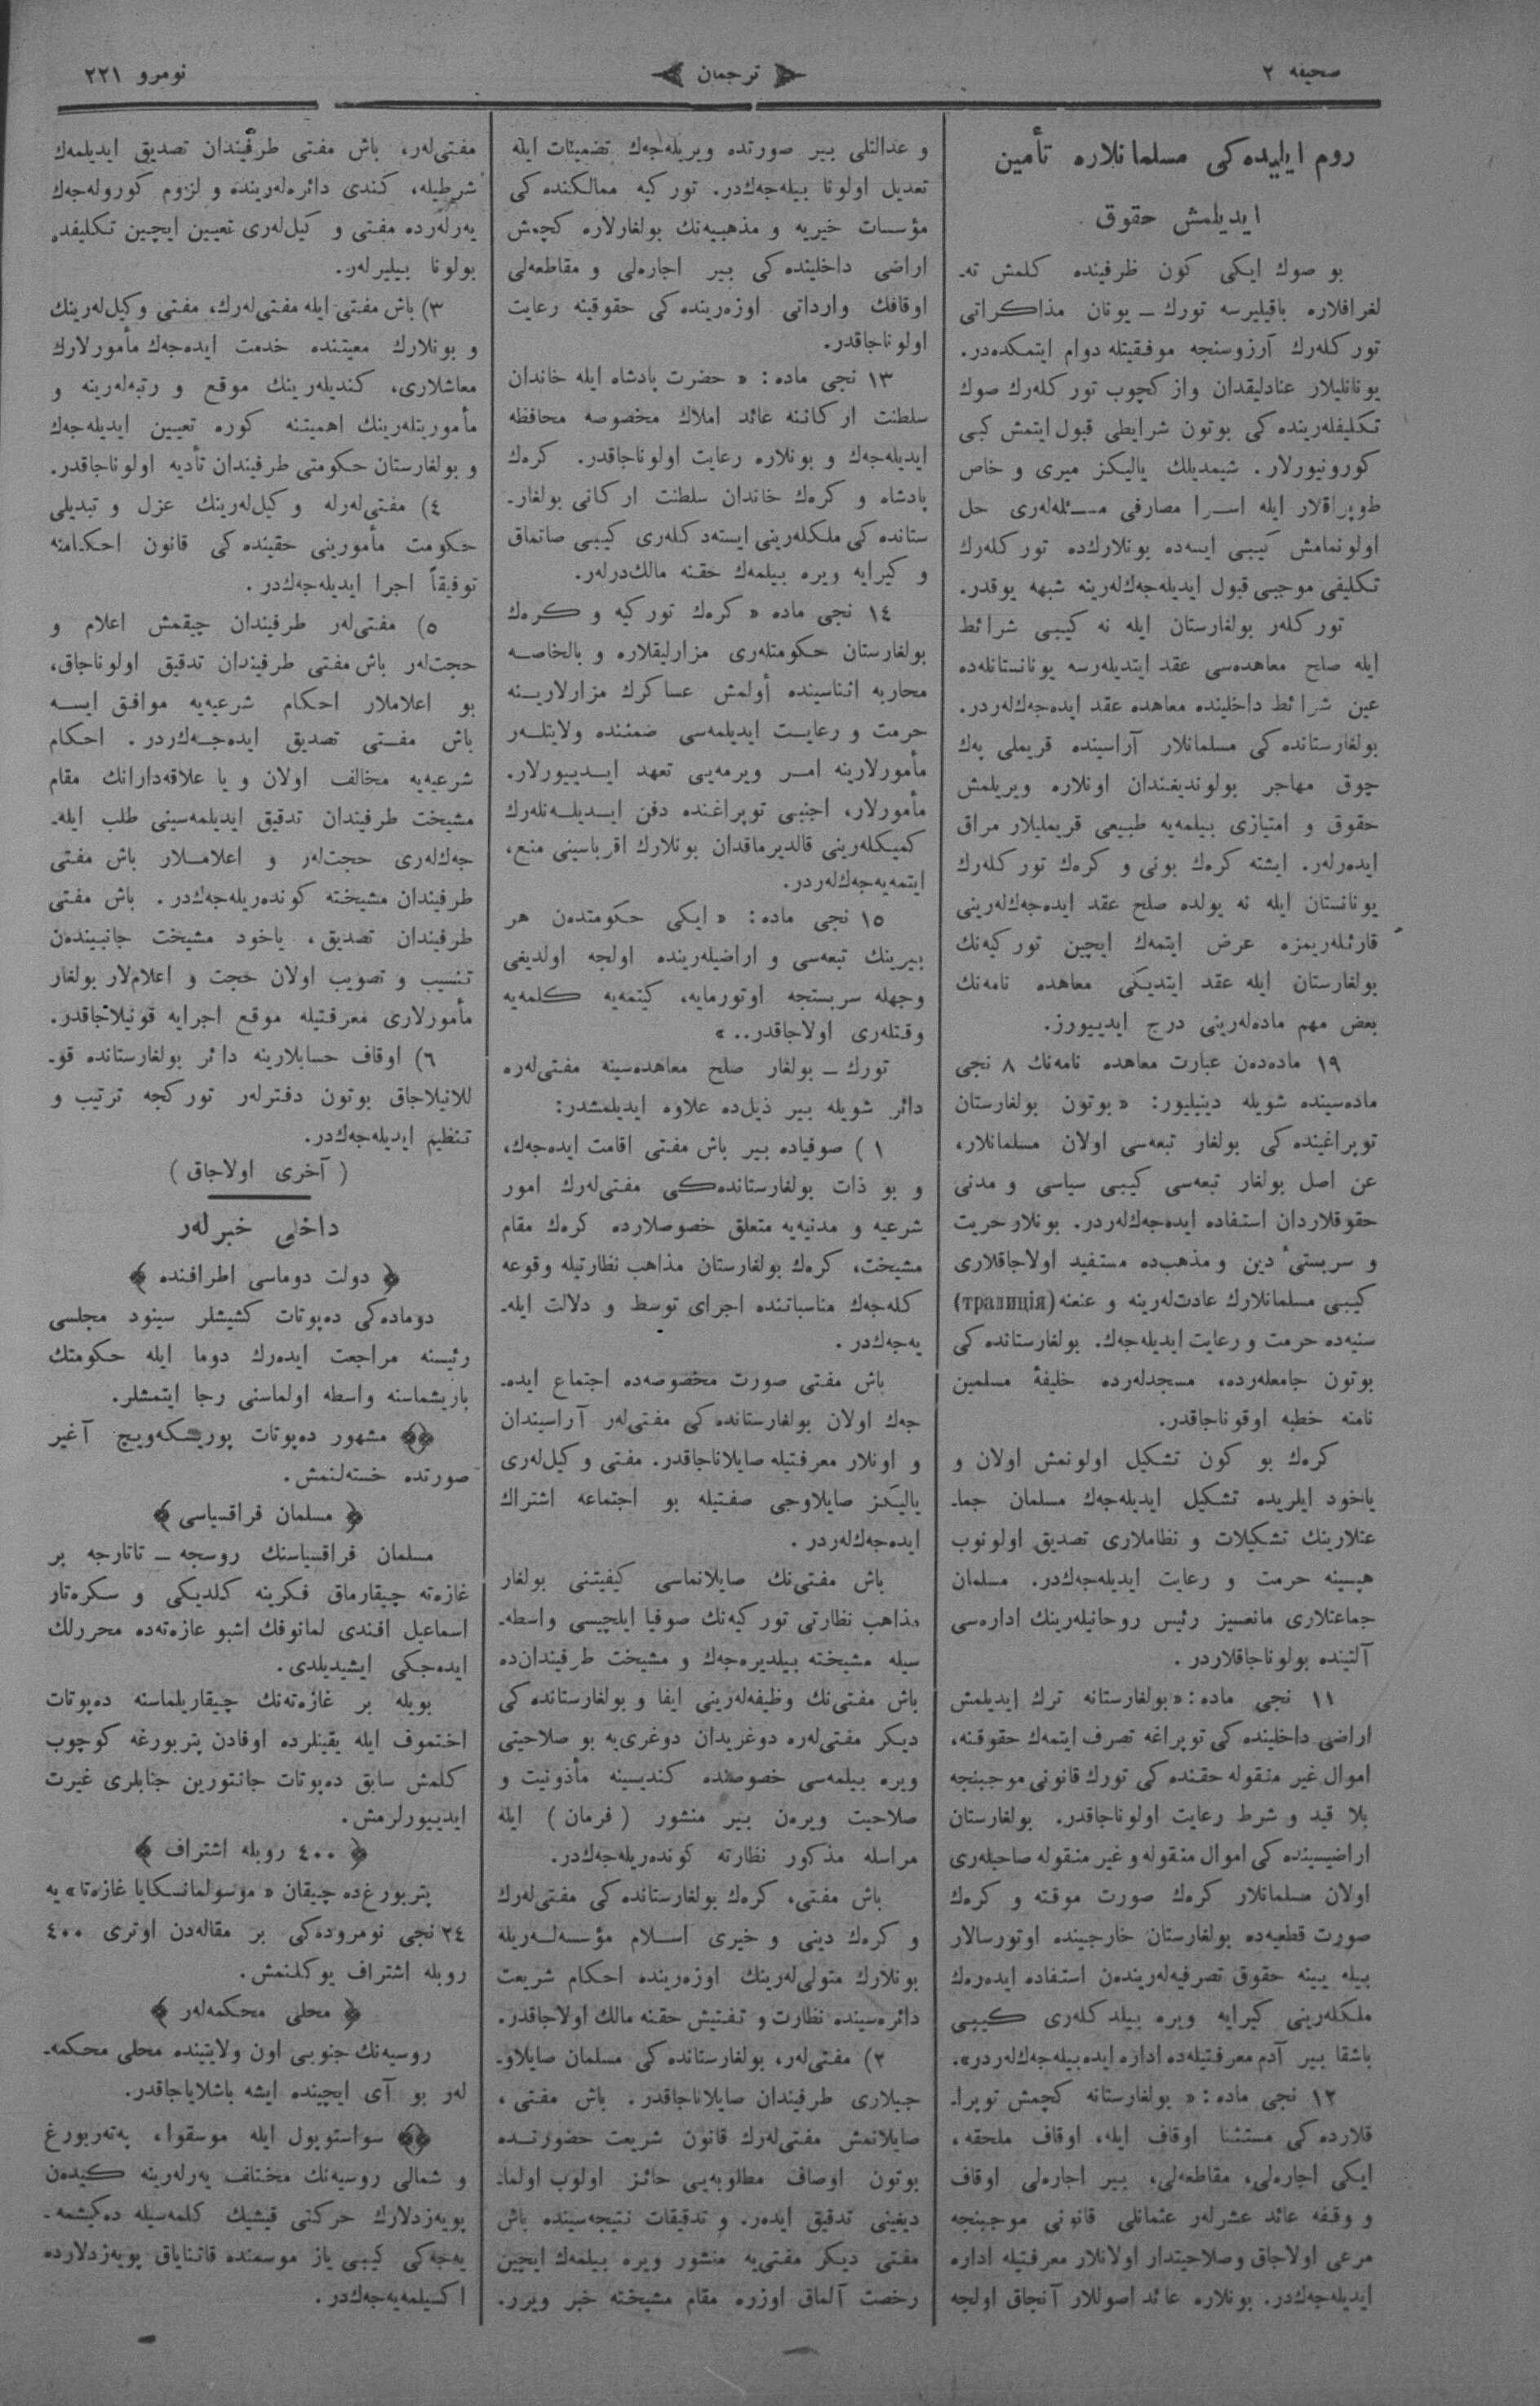 صحيفه ٢
ترجمان
نومرو ٢٢١
روم ايلیده‌كی مسلمانلاره تأمين
ايديلمش حقوق
بو صوك ايكی كون ظرفينده كلمش ته‌ـ
لغرافلاره باقيليرسه تورك ــ يونان مذاكراتی
توركلەرك آرزوسنجه موفقيتله دوام ايتمكده‌در.
يونانليلار عنادليقدان واز كچوب توركلەرك صوك
تكليفلەرينده كی بوتون شرايطی قبول ايتمش كبی
كورونيورلار. شيمديلك يالیكز ميری و خاص
طوپراقلار ايله اسرا مصارفی مسئلەلەری حل
اولونمامش كيبی ايسەده بونلارك‌ده توركلەرك
تكليفی موجبی قبول ايديلەجەكلەرينه شبهه يوقدر.
توركلەر بولغارستان ايله نه كيبی شرائط
ايله صلح معاهده‌سی عقد ايتديلەرسه يونانستانلەده
عين شرائط داخلينده معاهده عقد ايدەجەكلەردر.
بولغارستانده كی مسلمانلار آراسينده قريملی پەك
چوق مهاجر بولونديغندان اونلاره ويريلمش
حقوق و امتيازی بيلمەيه طبيعی قريمليلار مراق
ايدەرلەر. ايشته كرەك بونی و كرەك توركلەرك
يونانستان ايله نه يولده صلح عقد ايدەجەكلەرينی
قارئلەريمزه عرض ايتمەك ايچين توركيەنك
بولغارستان ايله عقد ايتديكی معاهده نامەنك
بعض مهم مادەلەرينی درج ايدييورز.
١٩ مادەدەن عبارت معاهده نامەنك ٨ نجی
مادەسينده شويله دينيليور: « بوتون بولغارستان
توپراغينده كی بولغار تبعەسی اولان مسلمانلار،
عن اصل بولغار تبعەسی كيبی سياسی و مدنی
حقوقلاردان استفاده ايدەجەكلەردر. بونلار حريت
و سربستیٔ دين و مذهب‌ده مستفيد اولاجاقلاری
كيبی مسلمانلارك عادت‌لەرينه و عنعنه (традиція)
سنيەده حرمت و رعايت ايديلەجەك. بولغارستانده كی
بوتون جامعلەرده، مسجدلەرده خليفهٔ مسلمين
نامنه خطبه اوقوناجاقدر.
كرەك بو كون تشكيل اولونمش اولان و
ياخود ايلريده تشكيل ايديلەجەك مسلمان جماـ
عتلارينك تشكيلات و نظاملاری تصديق اولونوب
هپسينه حرمت و رعايت ايديلەجەكدر. مسلمان
جماعتلاری مانعسيز رئيس روحانيلەرينك ادارەسی
آلتينده بولوناجاقلاردر.
١١ نجی ماده: « بولغارستانه ترك ايديلمش
اراضی داخلينده كی توپراغه تصرف ايتمەك حقوقنه،
اموال غير منقوله حقنده كی تورك قانونی موجبنجه
بلا قيد و شرط رعايت اولوناجاقدر. بولغارستان
اراضيسينده كی اموال منقوله و غير منقوله صاحبلەری
اولان مسلمانلار كرەك صورت موقته و كرەك
صورت قطعيەده بولغارستان خارجينده اوتورسالار
بيله يينه حقوق تصرفيەلەريندەن استفاده ايدەرەك
ملكلەرينی كيرايه ويره بيلدكلەری كيبی
باشقا بير آدم معرفتيلەده اداره ايدەبيلەجەكلەردر».
١٢ نجی ماده: « بولغارستانه كچمش توپراـ
قلارده كی مستثنا اوقاف ايله، اوقاف ملحقه،
ايكی اجارەلی، مقاطعەلی، بير اجارەلی اوقاف
و وقفه عائد عشرلەر عثمانلی قانونی موجبنجه
مرعی اولاجاق و صلاحيتدار اولانلار معرفتيله اداره
ايديلەجەكدر. بونلاره عائد اصوللار آنجاق اولجه
و عدالتلی بير صورتده ويريلەجەك تضمينات ايله
تعديل اولونا بيلەجەكدر. توركيه ممالكنده كی
مؤسسات خيريه و مذهبيەنك بولغارلاره كچمش
اراضی داخلينده كی بير اجارەلی و مقاطعەلی
اوقافك وارداتی اوزەرينده كی حقوقينه رعايت
اولوناجاقدر.
١٣ نجی ماده: « حضرت پادشاه ايله خاندان
سلطنت اركاننه عائد املاك مخصوصه محافظه
ايديلەجەك و بونلاره رعايت اولوناجاقدر. كرەك
پادشاه و كرەك خاندان سلطنت اركانی بولغارـ
ستانده كی ملكلەرينی ايستەدكلەری كيبی صاتماق
و كيرايه ويره بيلمەك حقنه مالكدرلەر.
١٤ نجی ماده « كرەك توركيه و كرەك
بولغارستان حكومتلەری مزارليقلاره و بالخاصه
محاربه اثناسينده أولمش عساكرك مزارلارينه
حرمت و رعايت ايديلمەسی ضمننده ولايتلەر
مأمورلارينه امر ويرمەيی تعهد ايدييورلار.
مأمورلار، اجنبی توپراغنده دفن ايديلەنلەرك
كميكلەرينی قالديرماقدان بونلارك اقرباسينی منع،
ايتمەيەجەكلەردر.
١٥ نجی ماده: « ايكی حكومتدەن هر
بيرينك تبعەسی و اراضيلەرينده اولجه اولديغی
وجهله سربستجه اوتورمايه، كيتمەيه كلمەيه
وقتلەری اولاجاقدر.. »
تورك ــ بولغار صلح معاهدەسينه مفتی‌لەره
دائر شويله بير ذيل‌ده علاوه ايديلمشدر:
١) صوفياده بير باش مفتی اقامت ايدەجەك،
و بو ذات بولغارستاندەكی مفتی‌لەرك امور
شرعيه و مدنيەيه متعلق خصوصلارده كرەك مقام
مشيخت، كرەك بولغارستان مذاهب نظارتيله وقوعه
كلەجەك مناسباتنده اجرای توسط و دلالت ايلەـ
يەجەكدر.
باش مفتی صورت مخصوصەده اجتماع ايدەـ
جەك اولان بولغارستانده كی مفتی‌لەر آراسيندان
و اونلار معرفتيله صايلاناجاقدر. مفتی وكيل‌لەری
يالیكز صايلاوجی صفتيله بو اجتماعه اشتراك
ايدەجەكلەردر.
باش مفتی‌نك صايلانماسی كيفيتنی بولغار
مذاهب نظارتی توركيەنك صوفيا ايلچيسی واسطەـ
سيله مشيخته بيلديرەجەك و مشيخت طرفيندان‌ده
باش مفتی‌نك وظيفەلەرينی ايفا و بولغارستانده كی
ديكر مفتی‌لەره دوغريدان دوغری‌يه بو صلاحيتی
ويره بيلمەسی خصوصنده كنديسينه مأذونيت و
صلاحيت ويرەن بير منشور (فرمان) ايله
مراسله مذكور نظارته كوندەريلەجەكدر.
باش مفتی، كرەك بولغارستانده كی مفتی‌لەرك
و كرەك دينی و خيری اسلام مؤسسەلەريله
بونلارك متولی‌لەرينك اوزەرينده احكام شريعت
دائرەسينده نظارت و تفتيش حقنه مالك اولاجاقدر.
٢) مفتی‌لەر، بولغارستانده كی مسلمان صايلاوـ
جيلاری طرفيندان صايلاناجاقدر. باش مفتی،
صايلانمش مفتی‌لەرك قانون شريعت حضورنده
بوتون اوصاف مطلوبەيی حائز اولوب اولماـ
ديغينی تدقيق ايدەر. و تدقيقات نتيجەسينده باش
مفتی ديكر مفتی‌يه منشور ويره بيلمەك ايچين
رخصت آلماق اوزره مقام مشيخته خبر ويرر.
مفتی‌لەر، باش مفتی طرفيندان تصديق ايديلمەك
شرطيله، كندی دائرەلەرينده و لزوم كورولەجەك
يەرلەرده مفتی وكيل‌لەری تعيين ايچين تكليفده
بولونا بيليرلەر.
٣) باش مفتی ايله مفتی‌لەرك، مفتی وكيل‌لەرينك
و بونلارك معيتنده خدمت ايدەجەك مأمورلارك
معاشلاری، كنديلەرينك موقع و رتبەلەرينه و
مأموريتلەرينك اهميتنه كوره تعيين ايديلەجەك
و بولغارستان حكومتی طرفيندان تأديه اولوناجاقدر.
٤) مفتی‌لەرله وكيل‌لەرينك عزل و تبديلی
حكومت مأمورينی حقينده كی قانون احكامنه
توفيقاً اجرا ايديلەجەكدر.
٥) مفتی‌لەر طرفيندان چيقمش اعلام و
حجت‌لەر باش مفتی طرفيندان تدقيق اولوناجاق،
بو اعلاملار احكام شرعيەيه موافق ايسه
باش مفتی تصديق ايدەجەكدر. احكام
شرعيەيه مخالف اولان و يا علاقەدارانك مقام
مشيخت طرفيندان تدقيق ايديلمەسينی طلب ايلەـ
جەكلەری حجت‌لەر و اعلاملار باش مفتی
طرفيندان مشيخته كوندەريلەجەكدر. باش مفتی
طرفيندان تصديق، ياخود مشيخت جانبيندەن
تنسيب و تصويب اولان حجت و اعلام‌لار بولغار
مأمورلاری معرفتيله موقع اجرايه قونيلاجاقدر.
٦) اوقاف حسابلارينه دائر بولغارستانده قوـ
للانيلاجاق بوتون دفترلەر توركجه ترتيب و
تنظيم ايديلەجەكدر.
(آخری اولاجاق)
داخلی خبرلەر
﴿ دولت دوماسی اطرافنده ﴾
دوماده‌كی دەپوتات كشيشلر سينود مجلسی
رئيسنه مراجعت ايدەرك دوما ايله حكومتك
باريشماسنه واسطه اولماسنی رجا ايتمشلر.
﴿﴾ مشهور دەپوتات پوريشكەويچ آغير
صورتده خستەلنمش.
﴿ مسلمان فراقسياسی ﴾
مسلمان فراقسياسنك روسجه ــ تاتارجه بر
غازەته چيقارماق فكرينه كلديكی و سكرەتار
اسماعيل افندی لمانوفك اشبو غازەتەده محررلك
ايدەجكی ايشيديلدی.
بويله بر غازەتەنك چيقاريلماسنه دەپوتات
اختموف ايله يقينلرده اوفادن پتربورغه كوچوب
كلمش سابق دەپوتات جانتورين جنابلری غيرت
ايدييورلرمش.
﴿ ٤٠٠ روبله اشتراف ﴾
پتربورغ‌ده چيقان « موسولمانسكايا غازەتا» يه
٢٤ نجی نومروده‌كی بر مقالەدن اوتری ٤٠٠
روبله اشتراف يوكلنمش.
﴿ محلی محكمەلەر ﴾
روسيەنك جنوبی اون ولايتينده محلی محكمەـ
لەر بو آی ايچينده ايشه باشلاياجاقدر.
﴿﴾ سواستوپول ايله موسقوا، پەتەربورغ
و شمالی روسيەنك مختلف يەرلەرينه كيدەن
پويەزدلارك حركتی قيشيك كلمەسيله دەكيشمەـ
يەجەكی كيبی ياز موسمنده قاتناياق پويەزدلارده
اكسيلمەيەجەكدر.